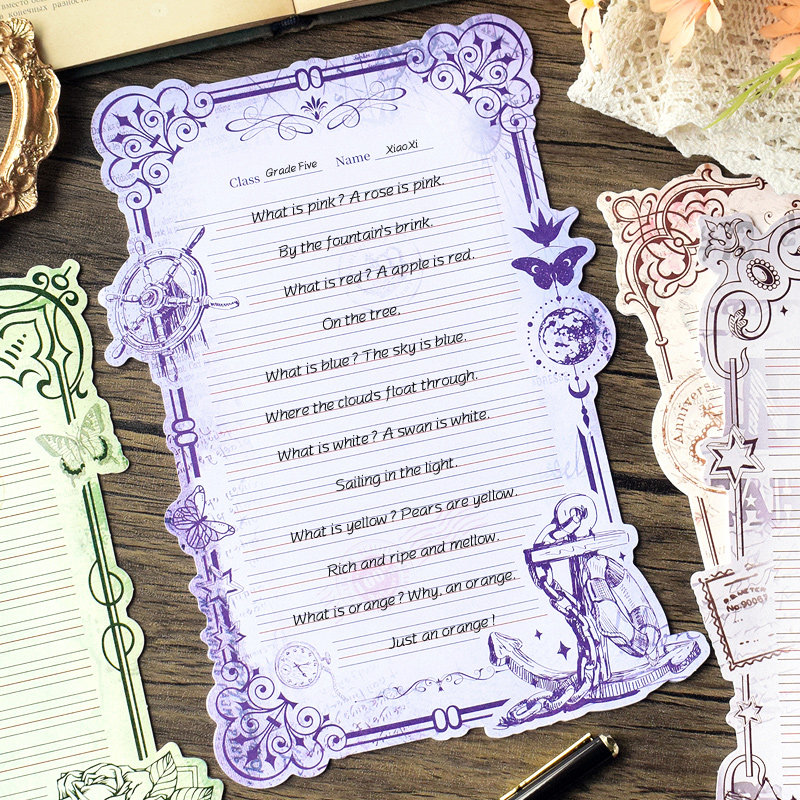 вместо о
конечных разност
Class Grade Five Name XiaoXi
What is pink? A rose is pink.
By the fountain's brink.
What is red? A apple is red.
On the tree.
What is blue? The sky is blue.
Where the clouds float through.
What is white? A swan is white.
Sailing in the light.
What is yellow? Pears are yellow.
Rich and ripe and mellow.
What is orange? Why, an orange.
Just an orange!
Annivers
No.90067